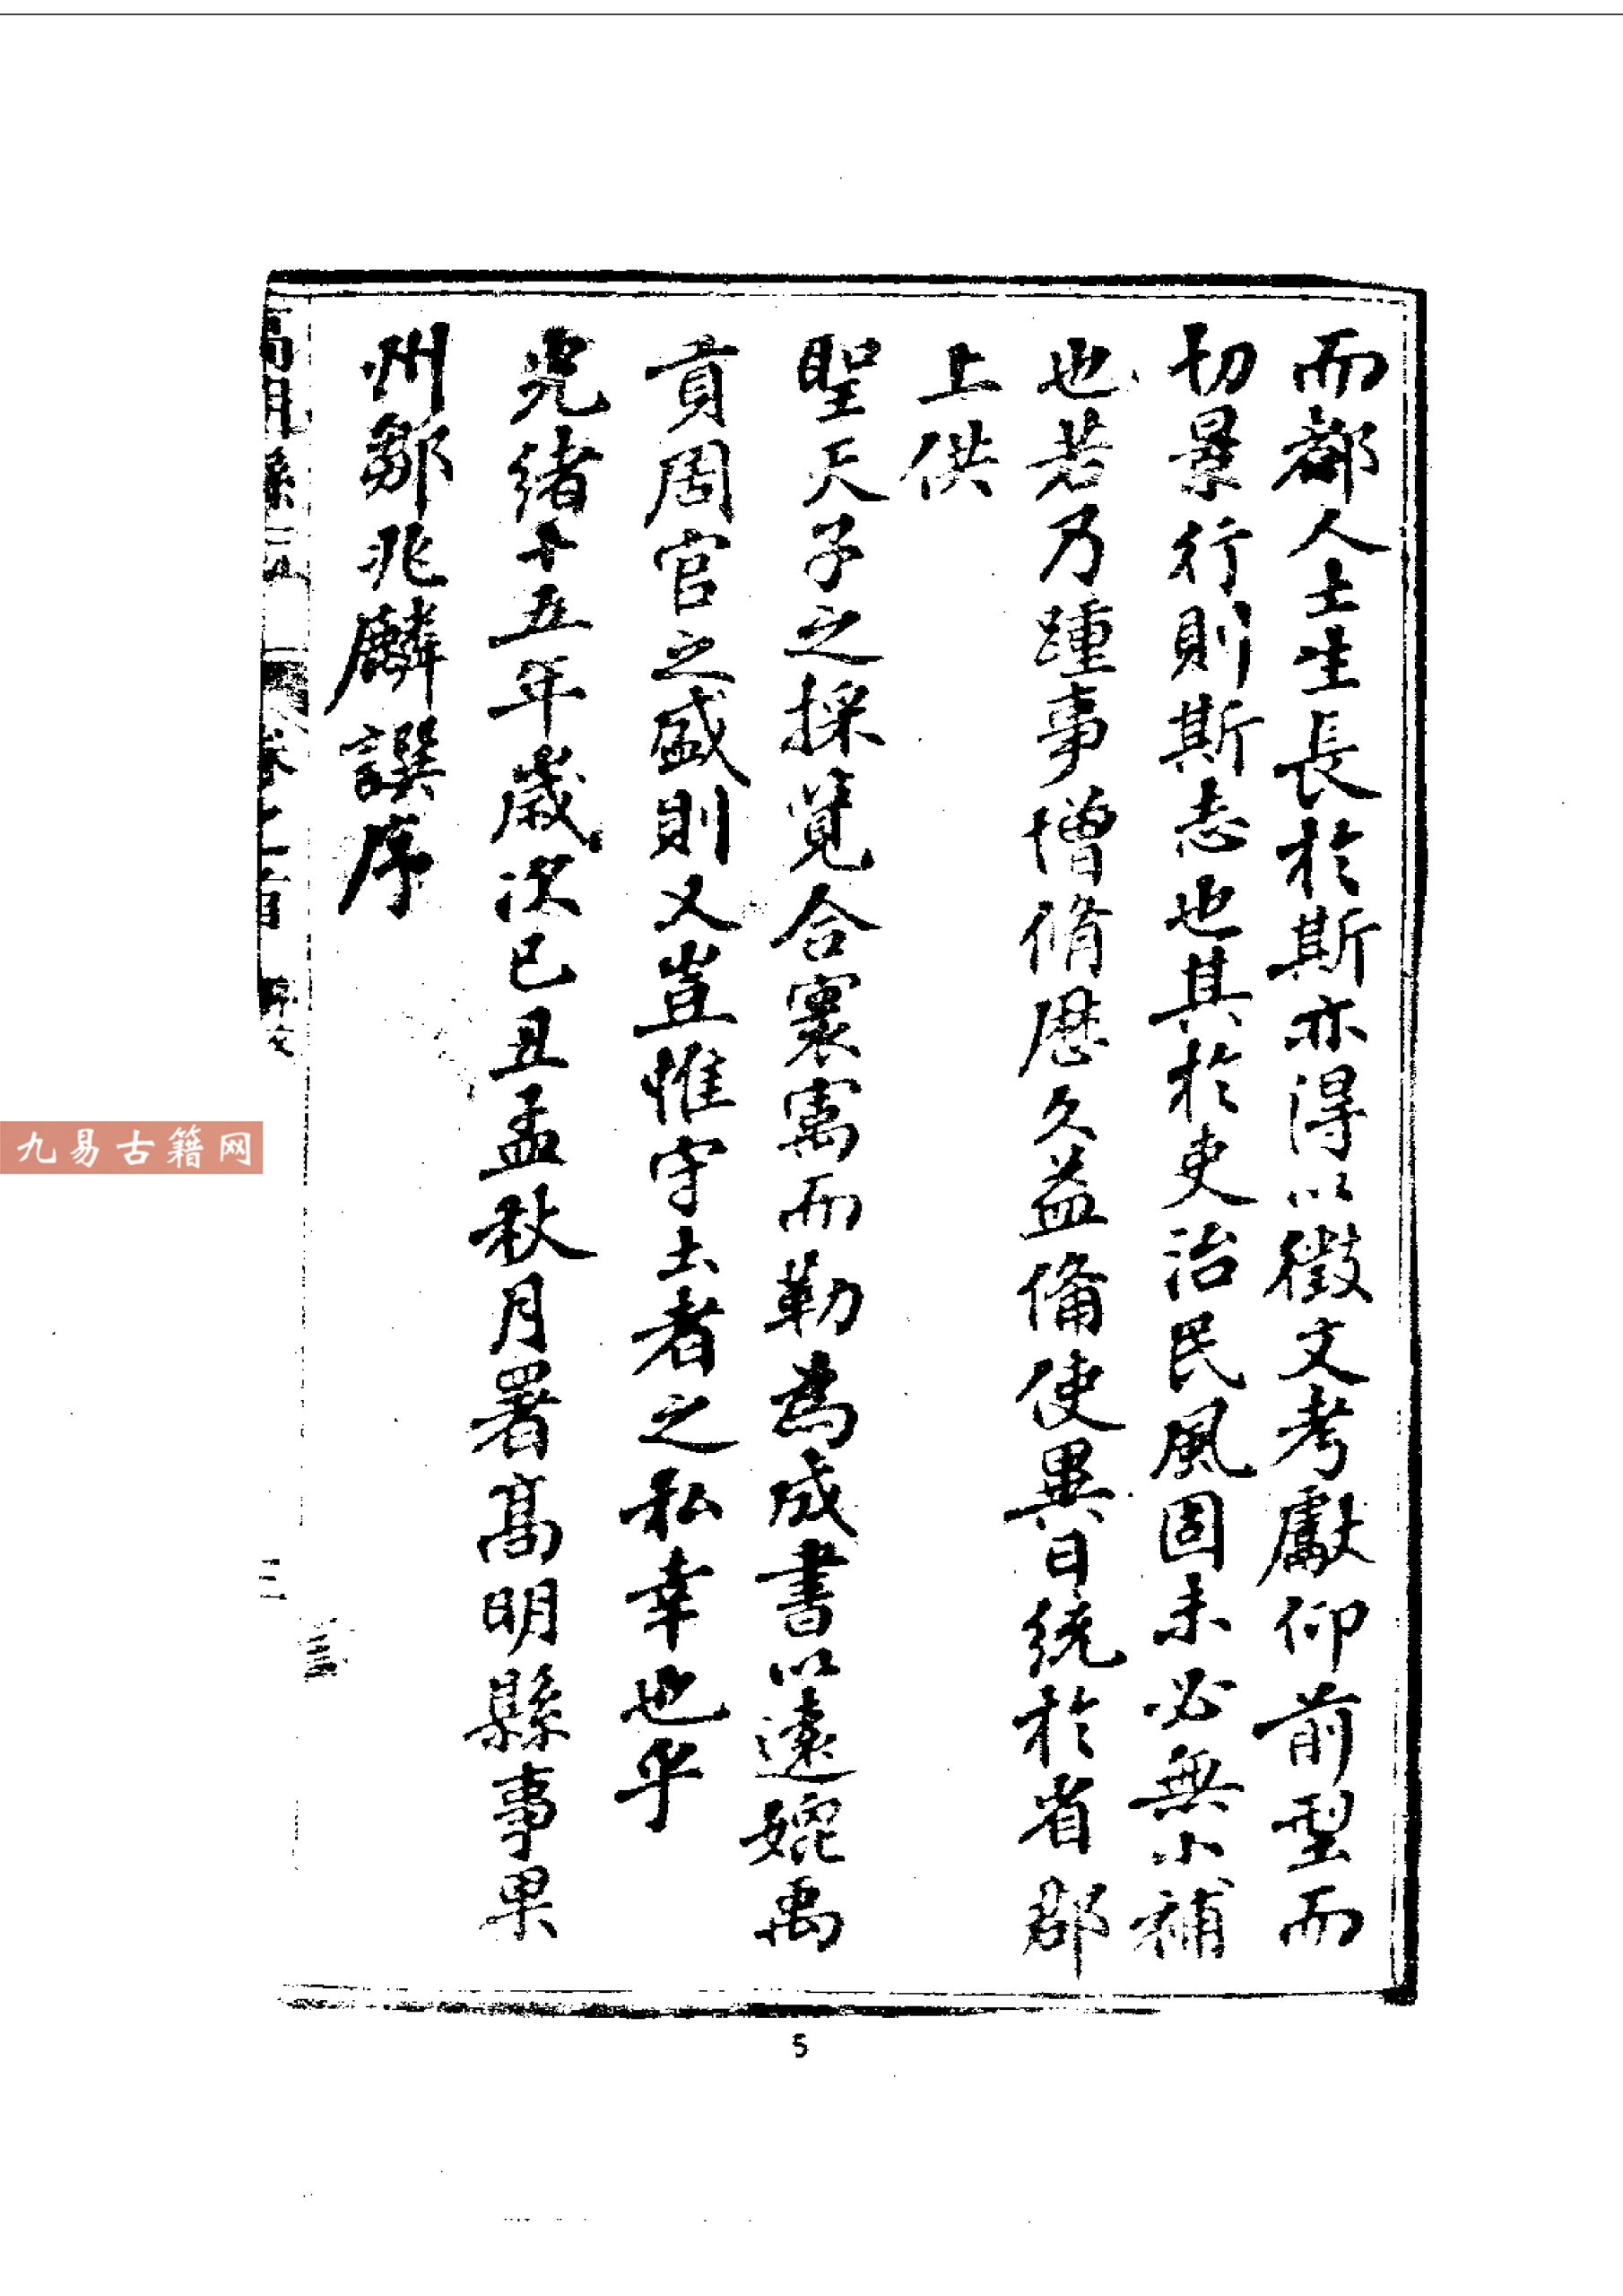 而都人士生長於斯亦得以徵文考獻仰前型而
切景行則斯志也其於吏治民風固未必無小補
也若乃踵事增脩歷久益備使異日統於省郡
上供
聖天子之採覽合寰寓而勒為成書以遠媲禹
貢周官之盛則又豈惟守土者之私幸也乎
光緒十五年歲次己丑孟秋月署高明縣事果
州鄒兆麟譔序
高明縣志 卷之首 序文 三
九易古籍网
5